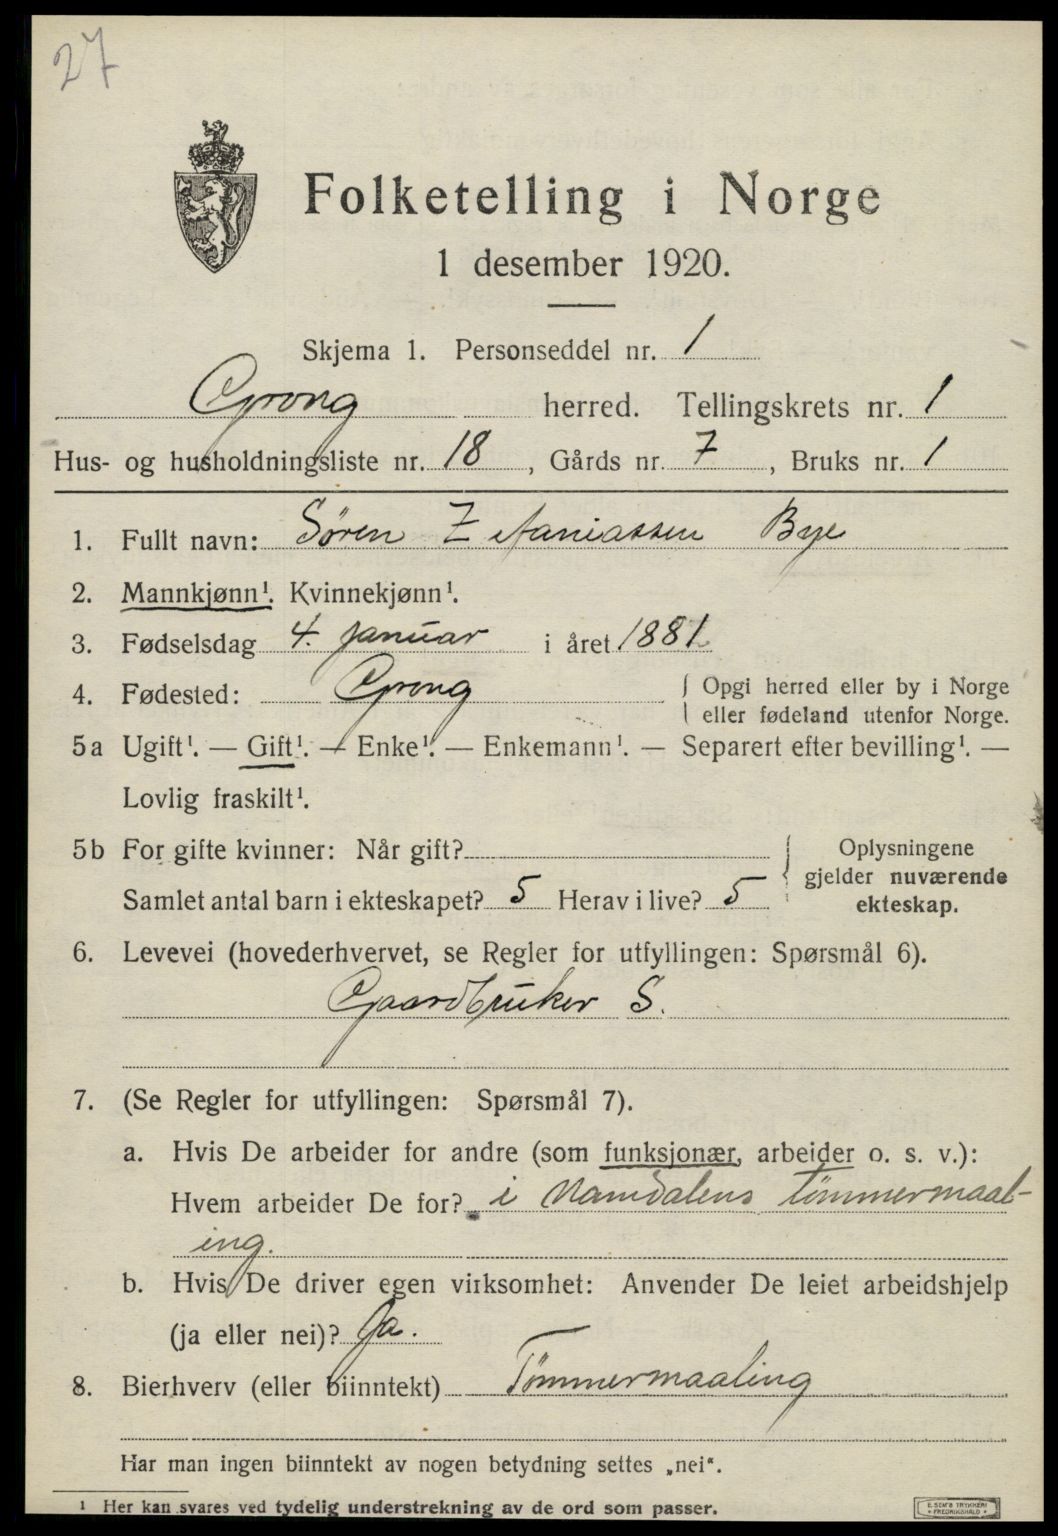 27
Folketelling i Norge
1 desember 1920.
Skjema 1. Personseddel nr. 1
Grong herred. Tellingskrets nr. 1
Hus- og husholdningsliste nr. 18, Gårds nr. 7, Bruks nr. 1
1. Fullt navn: Søren Zefaniassen Bye
2. Mannkjønn¹. Kvinnekjønn¹.
3. Fødselsdag 4. januar i året 1881
4. Fødested: Grong { Opgi herred eller by i Norge
eller fødeland utenfor Norge.
5a Ugift¹. — Gift¹. — Enke¹. — Enkemann¹. — Separert efter bevilling¹. —
Lovlig fraskilt¹.
5b For gifte kvinner: Når gift? { Oplysningene
gjelder nuværende
Samlet antal barn i ekteskapet? 5 Herav i live? 5 ekteskap.
6. Levevei (hovederhvervet, se Regler for utfyllingen: Spørsmål 6).
Gaardbruker S.
7. (Se Regler for utfyllingen: Spørsmål 7).
a. Hvis De arbeider for andre (som funksjonær, arbeider o. s. v.):
Hvem arbeider De for? i Namdalens tømmermaal-
ing.
b. Hvis De driver egen virksomhet: Anvender De leiet arbeidshjelp
(ja eller nei)? Ja.
8. Bierhverv (eller biinntekt) Tømmermaaling
Har man ingen biinntekt av nogen betydning settes „nei“.
¹ Her kan svares ved tydelig understrekning av de ord som passer.
E. SEM'S TRYKKERI
FREDRIKSHALD